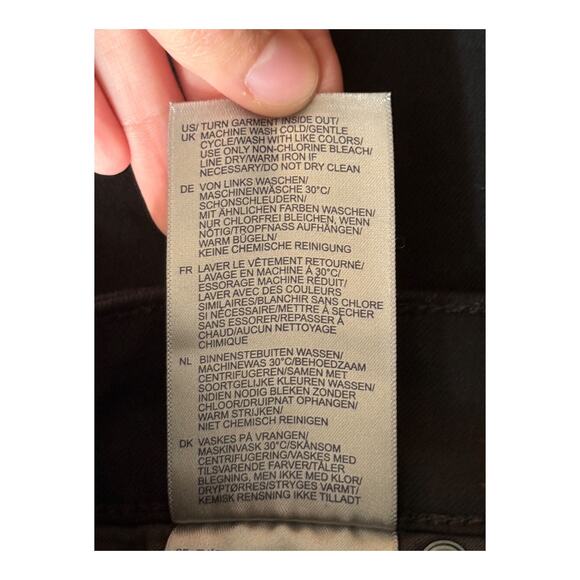 US/ TURN GARMENT INSIDE OUT/
UK MACHINE WASH COLD/GENTLE
CYCLE/WASH WITH LIKE COLORS/
USE ONLY NON-CHLORINE BLEACH/
LINE DRY/WARM IRON IF
NECESSARY/DO NOT DRY CLEAN
DE VON LINKS WASCHEN/
MASCHINENWÄSCHE 30°C/
SCHONSCHLEUDERN/
MIT ÄHNLICHEN FARBEN WASCHEN/
NUR CHLORFREI BLEICHEN, WENN
NÖTIG/TROPFNASS AUFHÄNGEN/
WARM BÜGELN/
KEINE CHEMISCHE REINIGUNG
FR LAVER LE VÊTEMENT RETOURNÉ/
LAVAGE EN MACHINE À 30°C/
ESSORAGE MACHINE RÉDUIT/
LAVER AVEC DES COULEURS
SIMILAIRES/BLANCHIR SANS CHLORE
SI NÉCESSAIRE/METTRE À SÉCHER
SANS ESSORER/REPASSER À
CHAUD/AUCUN NETTOYAGE
CHIMIQUE
NL BINNENSTEBUITEN WASSEN/
MACHINEWAS 30°C/BEHOEDZAAM
CENTRIFUGEREN/SAMEN MET
SOORTGELIJKE KLEUREN WASSEN/
INDIEN NODIG BLEKEN ZONDER
CHLOOR/DRUIPNAT OPHANGEN/
WARM STRIJKEN/
NIET CHEMISCH REINIGEN
DK VASKES PÅ VRANGEN/
MASKINVASK 30°C/SKÅNSOM
CENTRIFUGERING/VASKES MED
TILSVARENDE FARVER/TÅLER
BLEGNING, MEN IKKE MED KLOR/
DRYPTØRRES/STRYGES VARMT/
KEMISK RENSNING IKKE TILLADT